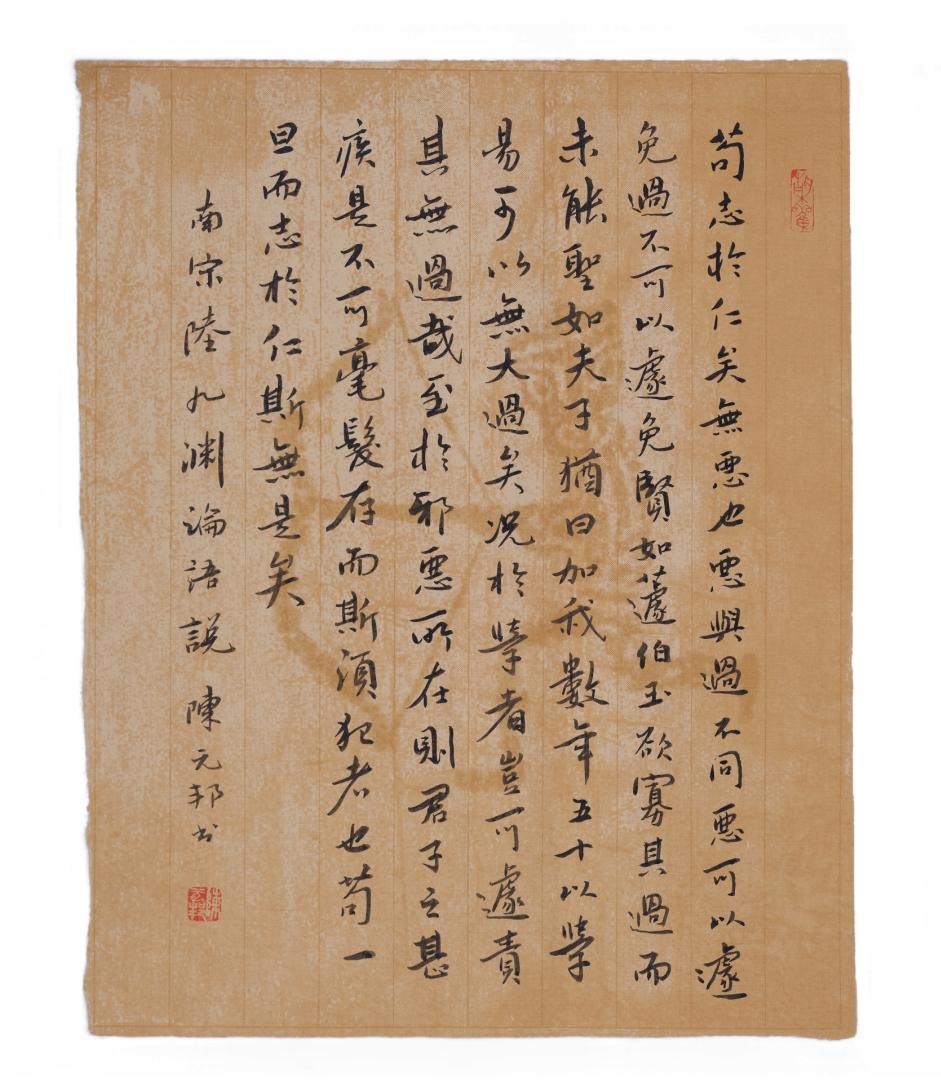 苟志於仁矣無惡也惡與過不同惡可以遽
免過不可以遽免賢如蘧伯玉欲寡其過而
未能聖如夫子猶曰加我數年五十以學
易可以無大過矣况於學者豈可遽責
其無過哉至於邪惡所在則君子之甚
疾是不可毫髮存而斯須犯者也苟一
旦而志於仁斯無是矣
南宗陸九渊論語説 陳元邦书